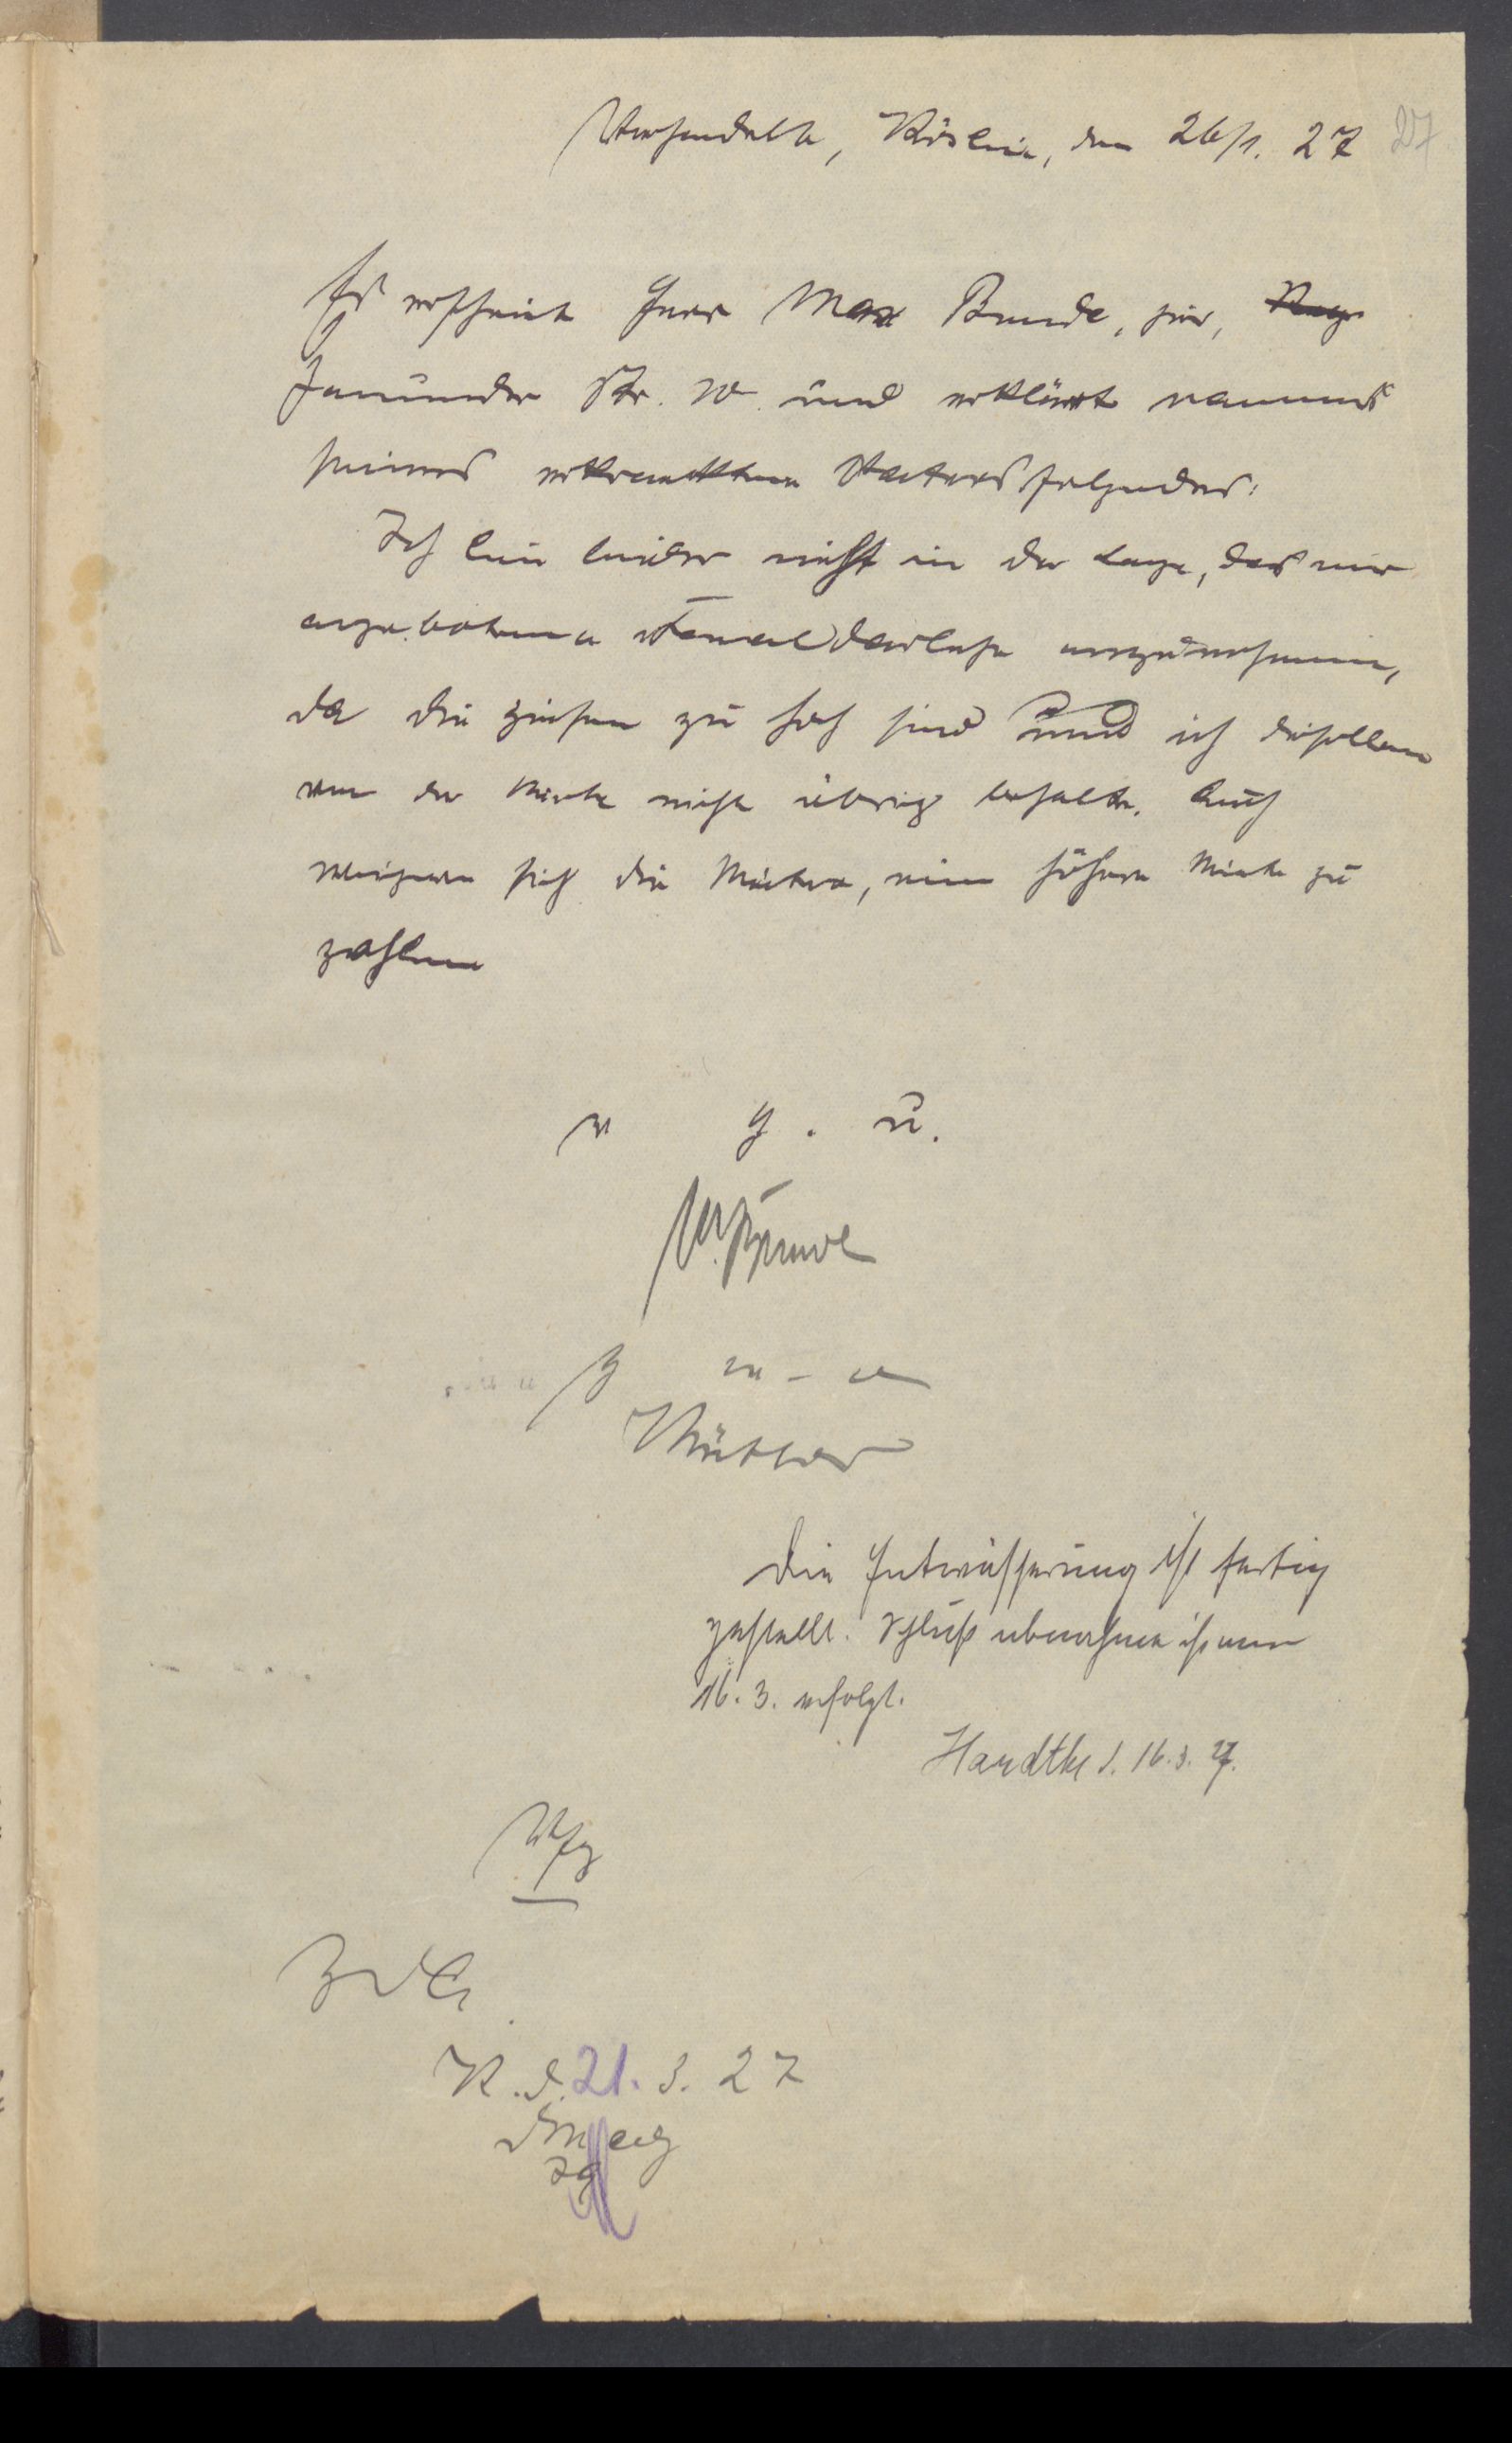 27
Verhandelt, Köslin, den 26/1. 27
Es erscheint Herr Max Bunde, hier,
Jamunder Str. 10 und erklärt namens
seines erkrankten Vaters folgendes:
Ich bin leider nicht in der Lage, das mir
angebotene Kanaldarlehn anzunehmen,
da die Zinsen zu hoch sind und ich dieselben
von der Miete nicht übrig behalte. Auch
weigern sich die Mieter, eine höhere Miete zu
zahlen
v g. u.
M. Bunde
Die Entwässerung ist fertig
gestellt. Schlußabnahme ist am
16. 3. erfolgt.
Hardtke 16. 3. 27.
Vfg
Z d A
K. d. 21. 3. 27